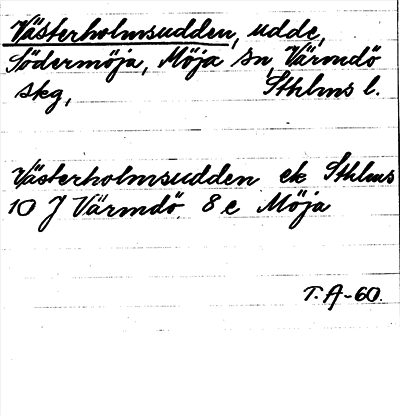 Västerholmsudden, udde,
Södermöja, Möja sn, Värmdö
skg, Sthlms l.
Västerholmsudden ek Sthlms
10 J Värmdö. 8 e Möja
T. A-60.